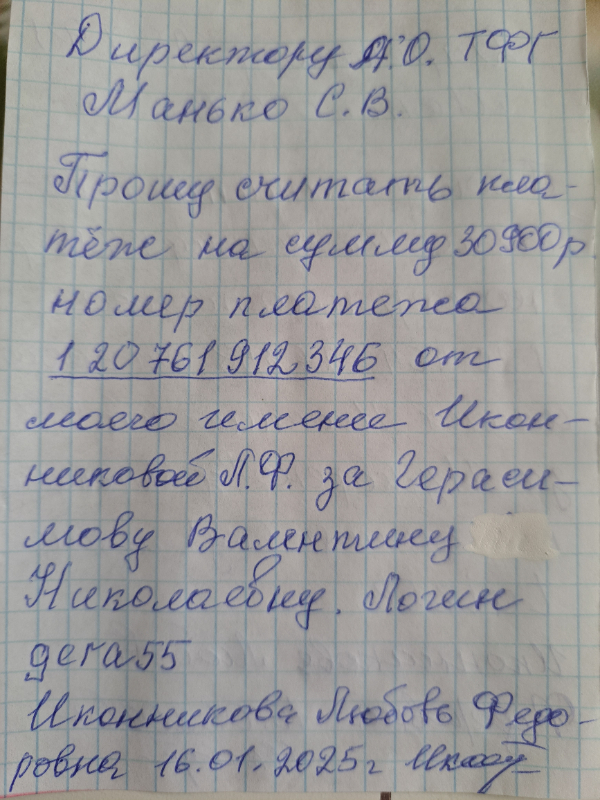 Директору А.О. ТФГ
Манько С.В.
Прошу считать пла-
тёж на сумму 30900р
номер платежа
120761912346 от
моего имени Икон-
никовой Л.Ф. за Гераси-
мову Валентину
Николаевну. Логин
дега55
Иконникова Любовь Федо-
ровна 16.01.2025г